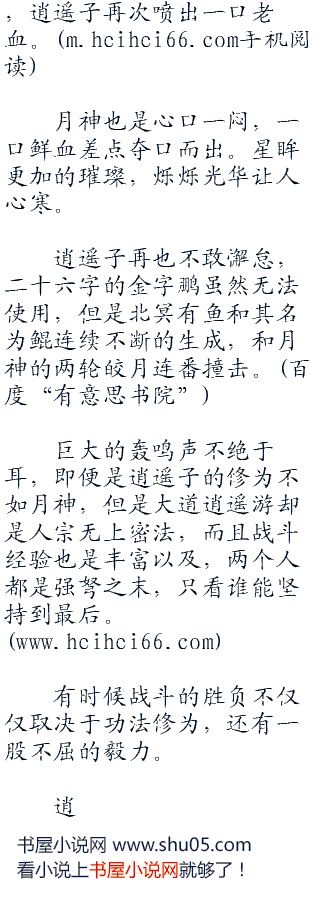 ，逍遥子再次喷出一口老
血。(m.hcihci66.com手机阅
读)
月神也是心口一闷，一
口鲜血差点夺口而出。星眸
更加的璀璨，烁烁光华让人
心寒。
逍遥子再也不敢懈怠，
二十六字的金字鹏虽然无法
使用，但是北冥有鱼和其名
为鲲连续不断的生成，和月
神的两轮皎月连番撞击。(百
度“有意思书院”)
巨大的轰鸣声不绝于
耳，即便是逍遥子的修为不
如月神，但是大道逍遥游却
是人宗无上密法，而且战斗
经验也是丰富以及，两个人
都是强弩之末，只看谁能坚
持到最后。
(www.hcihci66.com)
有时候战斗的胜负不仅
仅取决于功法修为，还有一
股不屈的毅力。
逍
书屋小说网 www.shu05.com
看小说上书屋小说网就够了！